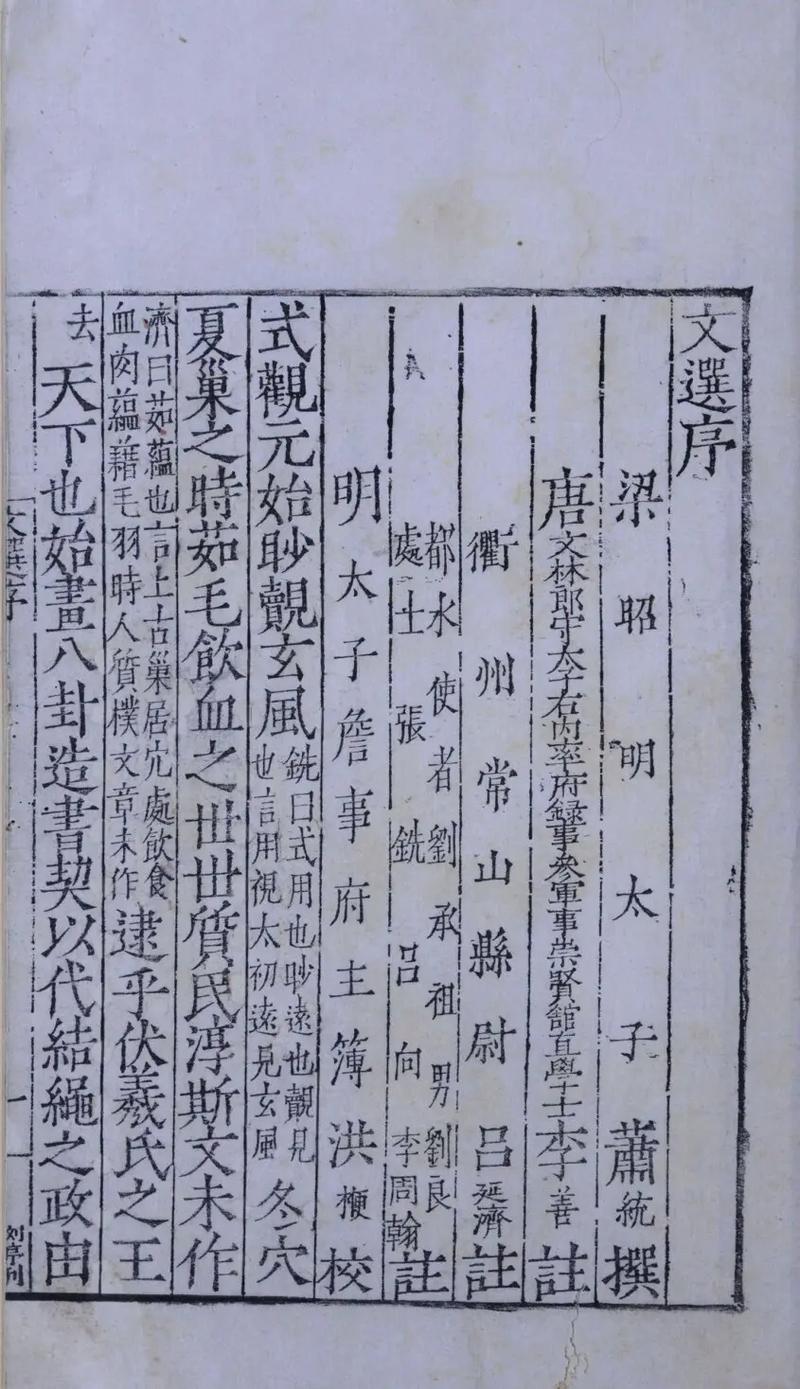 文選序
梁昭明太子蕭統撰
唐文林郎守太子右內率府錄事參軍事崇賢館直學士李善註
衢州常山縣尉呂延濟註
都水使者劉承祖男劉良
處士張銑呂向李周翰註
明太子詹事府主簿洪楩校
式觀元始眇覿玄風銑曰式用也眇遠也覿見
也言用視太初遠見玄風冬穴
夏巢之時茹毛飲血之世世質民淳斯文未作
濟曰茹蘊也言上古巢居穴處飲食
血肉蘊藉毛羽時人質樸文章未作逮乎伏羲氏之王
去天下也始畫八卦造書契以代結繩之政由
文選序
一